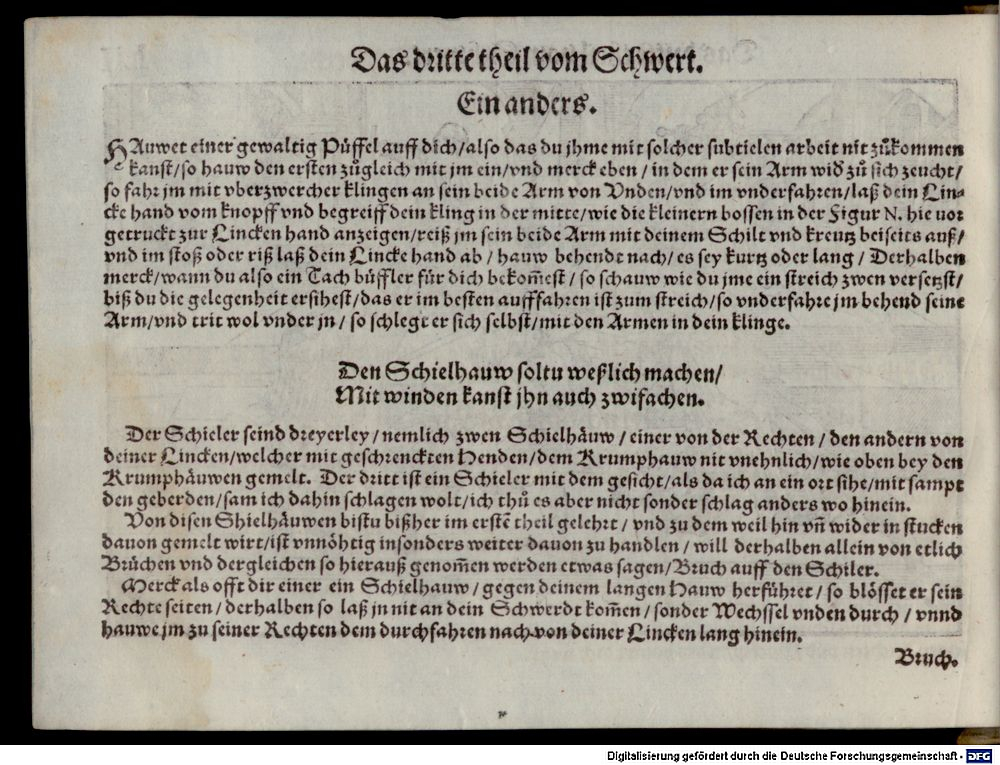 Das dritte theil vom Schwert.
Ein anders.
HAuwet einer gewaltig Püffel auff dich/also das du jhme mit solcher subtielen arbeit nit zůkommen
kanst/so hauw den ersten zůgleich mit jm ein/vnd merck eben/in dem er sein Arm wid zů sich zeucht/
so fahr jm mit vberzwercher klingen an sein beide Arm von Vnden/vnd im vnderfahren/laß dein Lin-
cke hand vom knopff vnd begreiff dein kling in der mitte/wie die kleinern bossen in der Figur N. hie vor
getruckt zur Lincken hand anzeigen/reiß jm sein beide Arm mit deinem Schilt vnd kreutz beiseits auß/
vnd im stoß oder riß laß dein Lincke hand ab/hauw behendt nach/es sey kurtz oder lang/Derhalben
merck/wann du also ein Tach büffler für dich bekom̃est/so schauw wie du jme ein streich zwen versetzst/
biß du die gelegenheit ersihest/das er im besten aufffahren ist zum streich/so vnderfahre jm behend seine
Arm/vnd trit wol vnder jn/so schlegt er sich selbst/mit den Armen in dein klinge.
Den Schielhauw soltu weßlich machen/
Mit winden kanst jhn auch zwifachen.
Der Schieler seind dreyerley/nemlich zwen Schielhäuw/einer von der Rechten/den andern von
deiner Lincken/welcher mit geschrenckten Henden/dem Krumphauw nit vnehnlich/wie oben bey den
Krumphäuwen gemelt. Der dritt ist ein Schieler mit dem gesicht/als da ich an ein ort sihe/mit sampt
den geberden/sam ich dahin schlagen wolt/ich thů es aber nicht sonder schlag anders wo hinein.
Von disen Shielhäuwen bistu bißher im erstẽ theil gelehrt/vnd zu dem weil hin vñ wider in stucken
dauon gemelt wirt/ist vnnöhtig insonders weiter dauon zu handlen/will derhalben allein von etlich
Brüchen vnd dergleichen so hierauß genom̃en werden etwas sagen/Bruch auff den Schiler.
Merck als offt dir einer ein Schielhauw/gegen deinem langen Hauw herführet/so blösset er sein
Rechte seiten/derhalben so laß jn nit an dein Schwerdt kom̃en/sonder Wechssel vnden durch/vnnd
hauwe jm zu seiner Rechten dem durchfahren nach von deiner Lincken lang hinein.
Bruch.
Digitalisierung gefördert durch die Deutsche Forschungsgemeinschaft - DFG